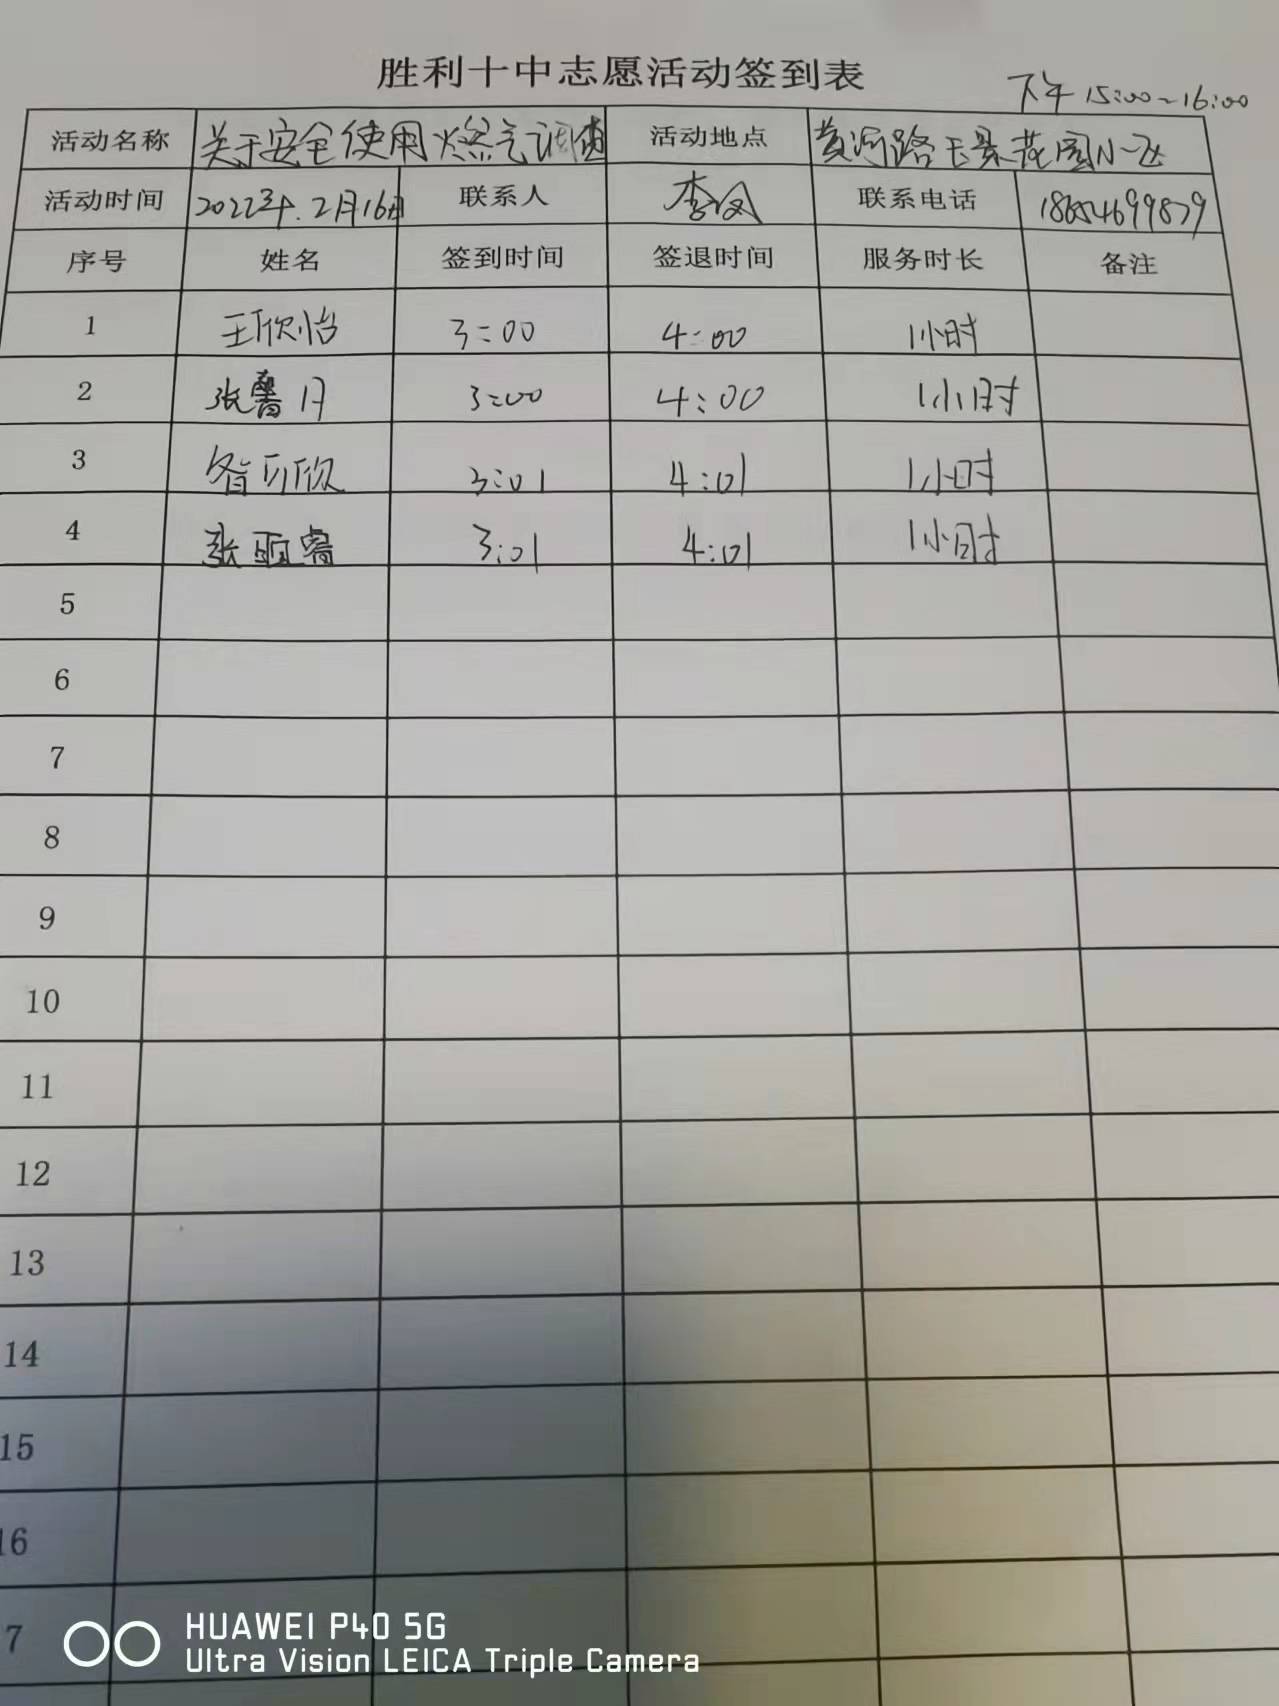 胜利十中志愿活动签到表
下午 15:00-16:00
活动名称 关于安全使用燃气调查 活动地点 黄河路玉景花园小区
活动时间 2022年.2月16日 联系人 李凤 联系电话 18654699879
序号 姓名 签到时间 签退时间 服务时长 备注
1 王欣怡 3:00 4:00 1小时
2 张馨月 3:00 4:00 1小时
3 昝可欣 3:01 4:01 1小时
4 张亚睿 3:01 4:01 1小时
5
6
7
8
9
10
11
12
13
14
15
16
7
HUAWEI P40 5G
Ultra Vision LEICA Triple Camera